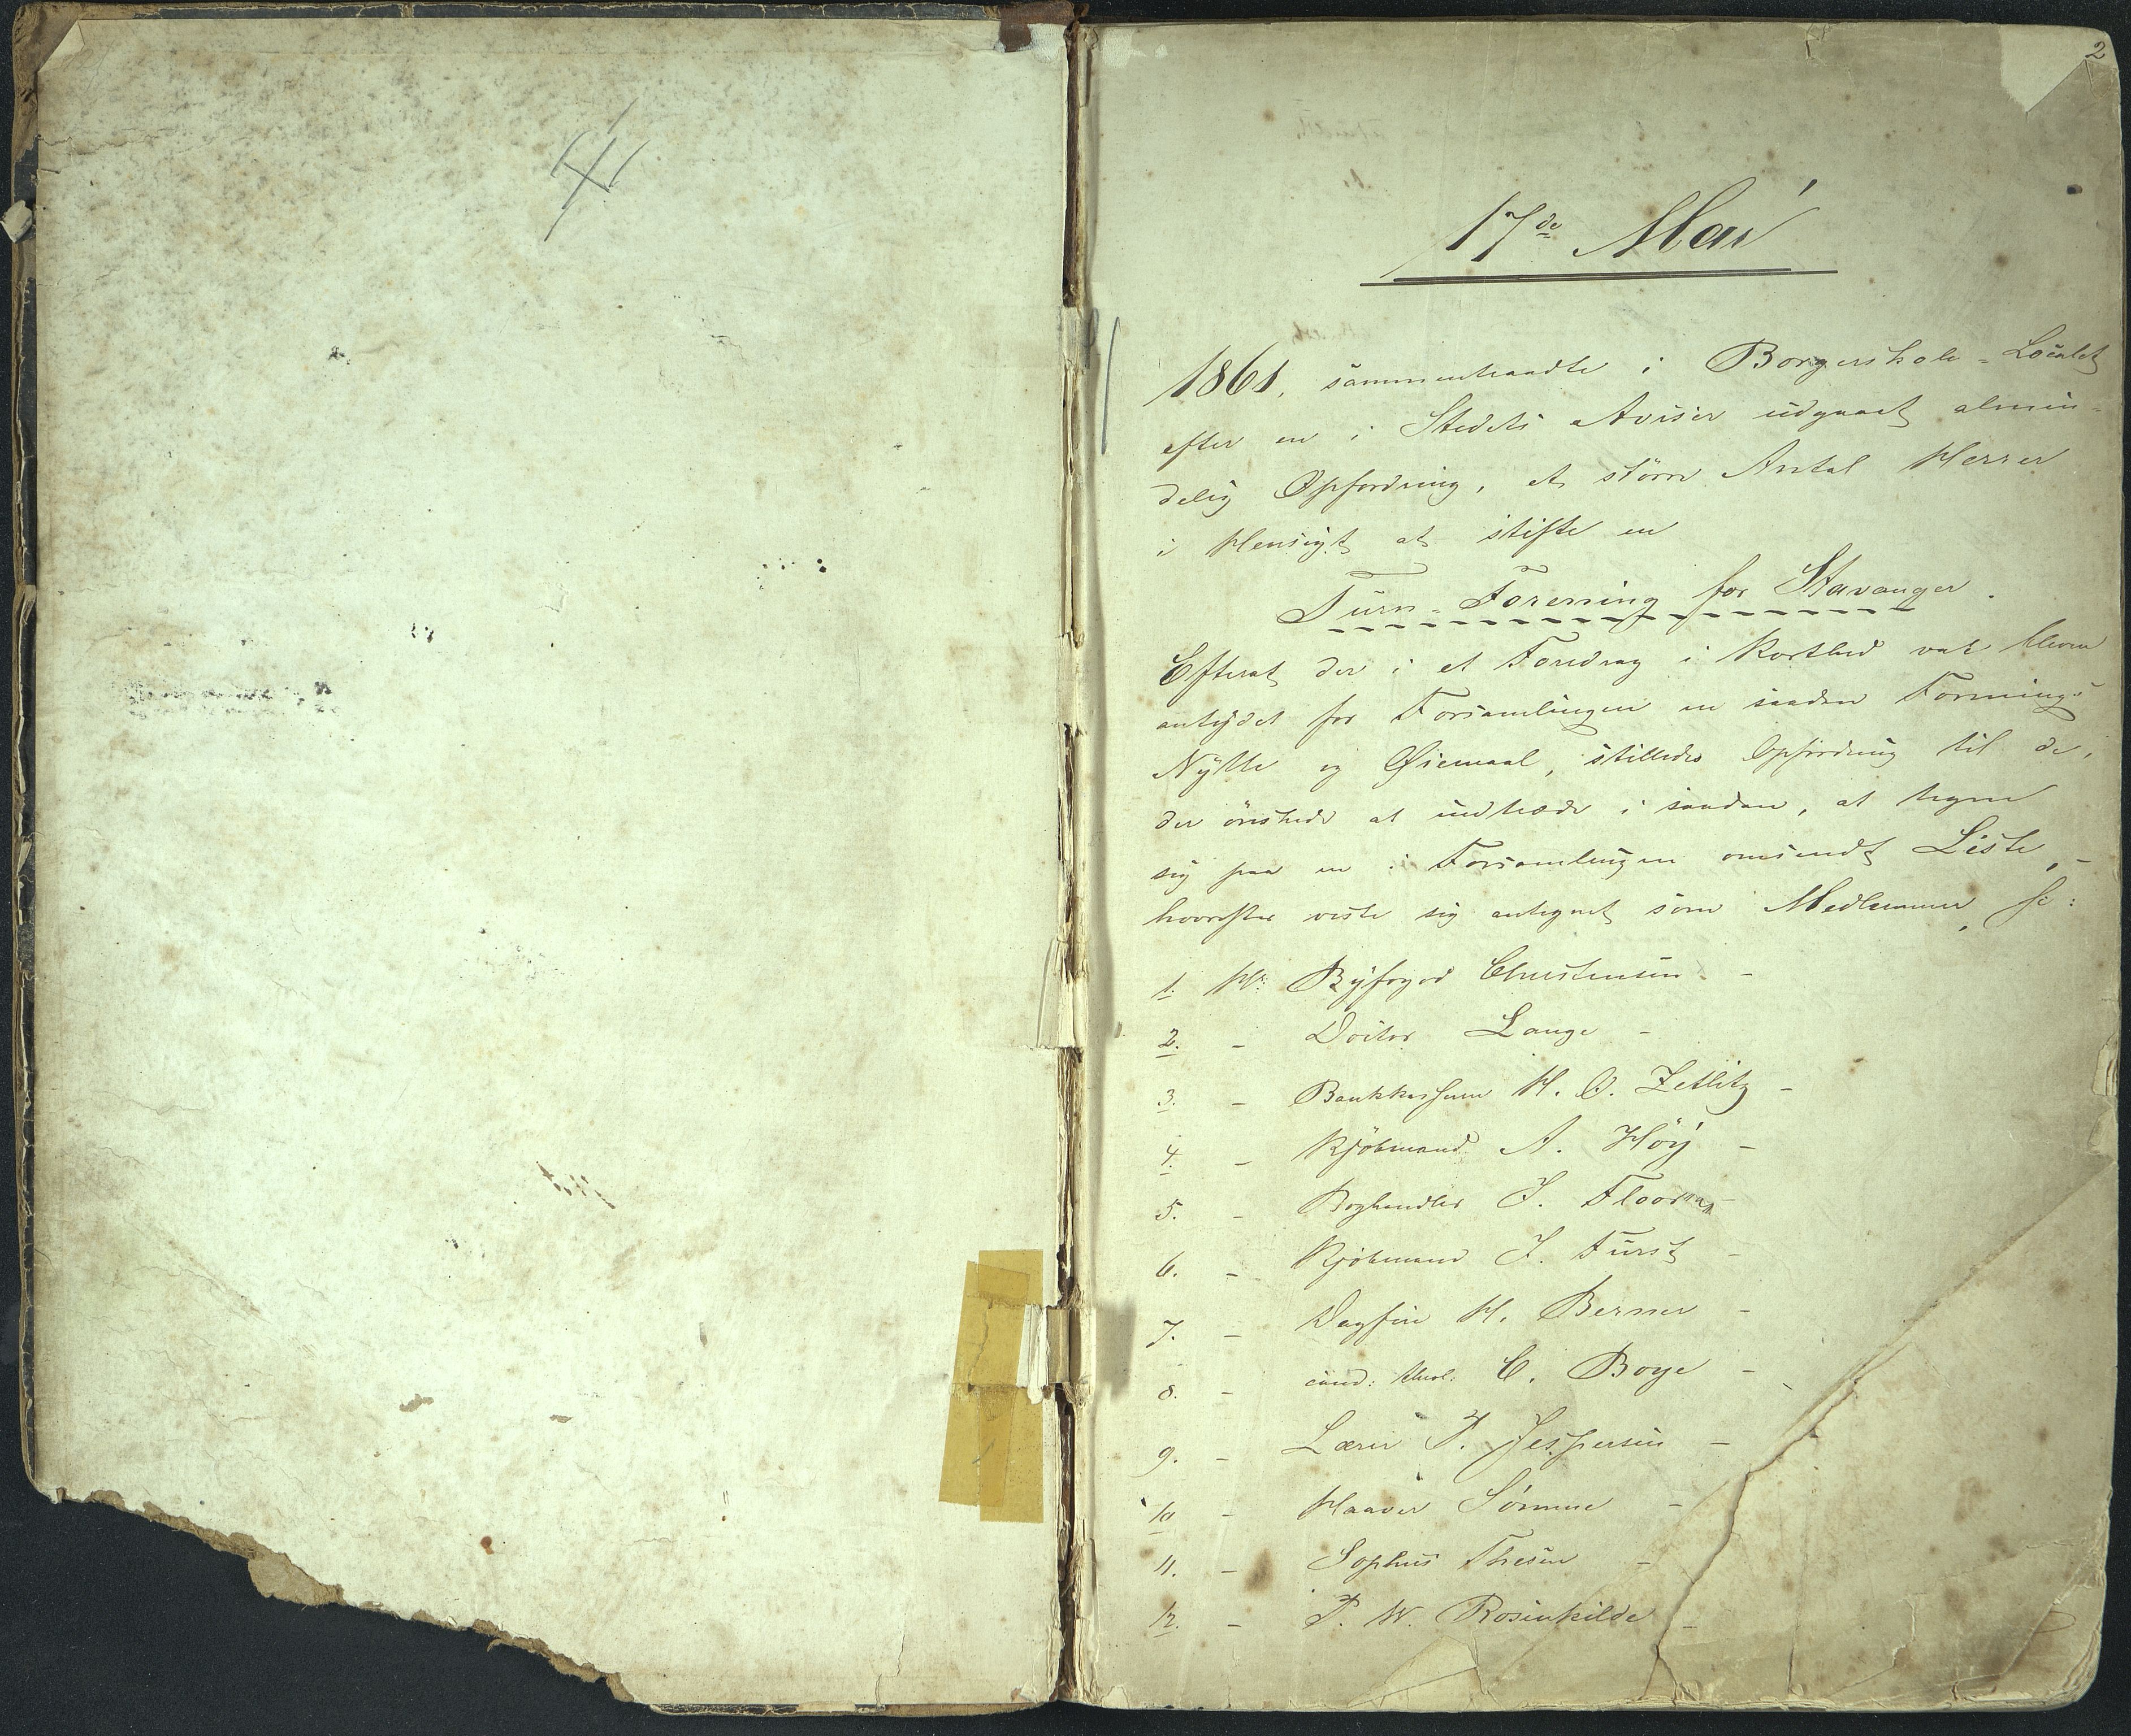 2
17de Mai
1861, sammentraadte i Borgerskole-Localet
efter en i Stedets Aviser udgaaet almin-
delig Opfordring, et större Antal Herrer
i Hensigt at stifte en
Turn-Forening for Stavanger.
Efterat der i et Foredrag i Korthed var bleven
antydet for Forsamlingen en saadan Forenings
Nytte og Øiemaal, stilledes Opfordring til de,
der önskede at indtræde i saadan, at tegne
sig paa en i Forsamlingen omsendt Liste, -
hvorefter viste sig antegnet som Medlemmer,
1. Hr. Byfoged Christensen -
2. - Doctor Lange -
3. - Bankkasserer H. O. Zetlitz -
4. - Kjöbmand A. Höy -
5. - Boghandler I. Floor -
6. - Kjöbmand I. Fürst -
7. - Dagfin H. Berner -
8. - cand: theol: C. Boye -
9. - Lærer P. Jespersen -
10 - Haaver Sömme -
11. - Sophus Thesen -
12. - P. W. Rosenkilde -